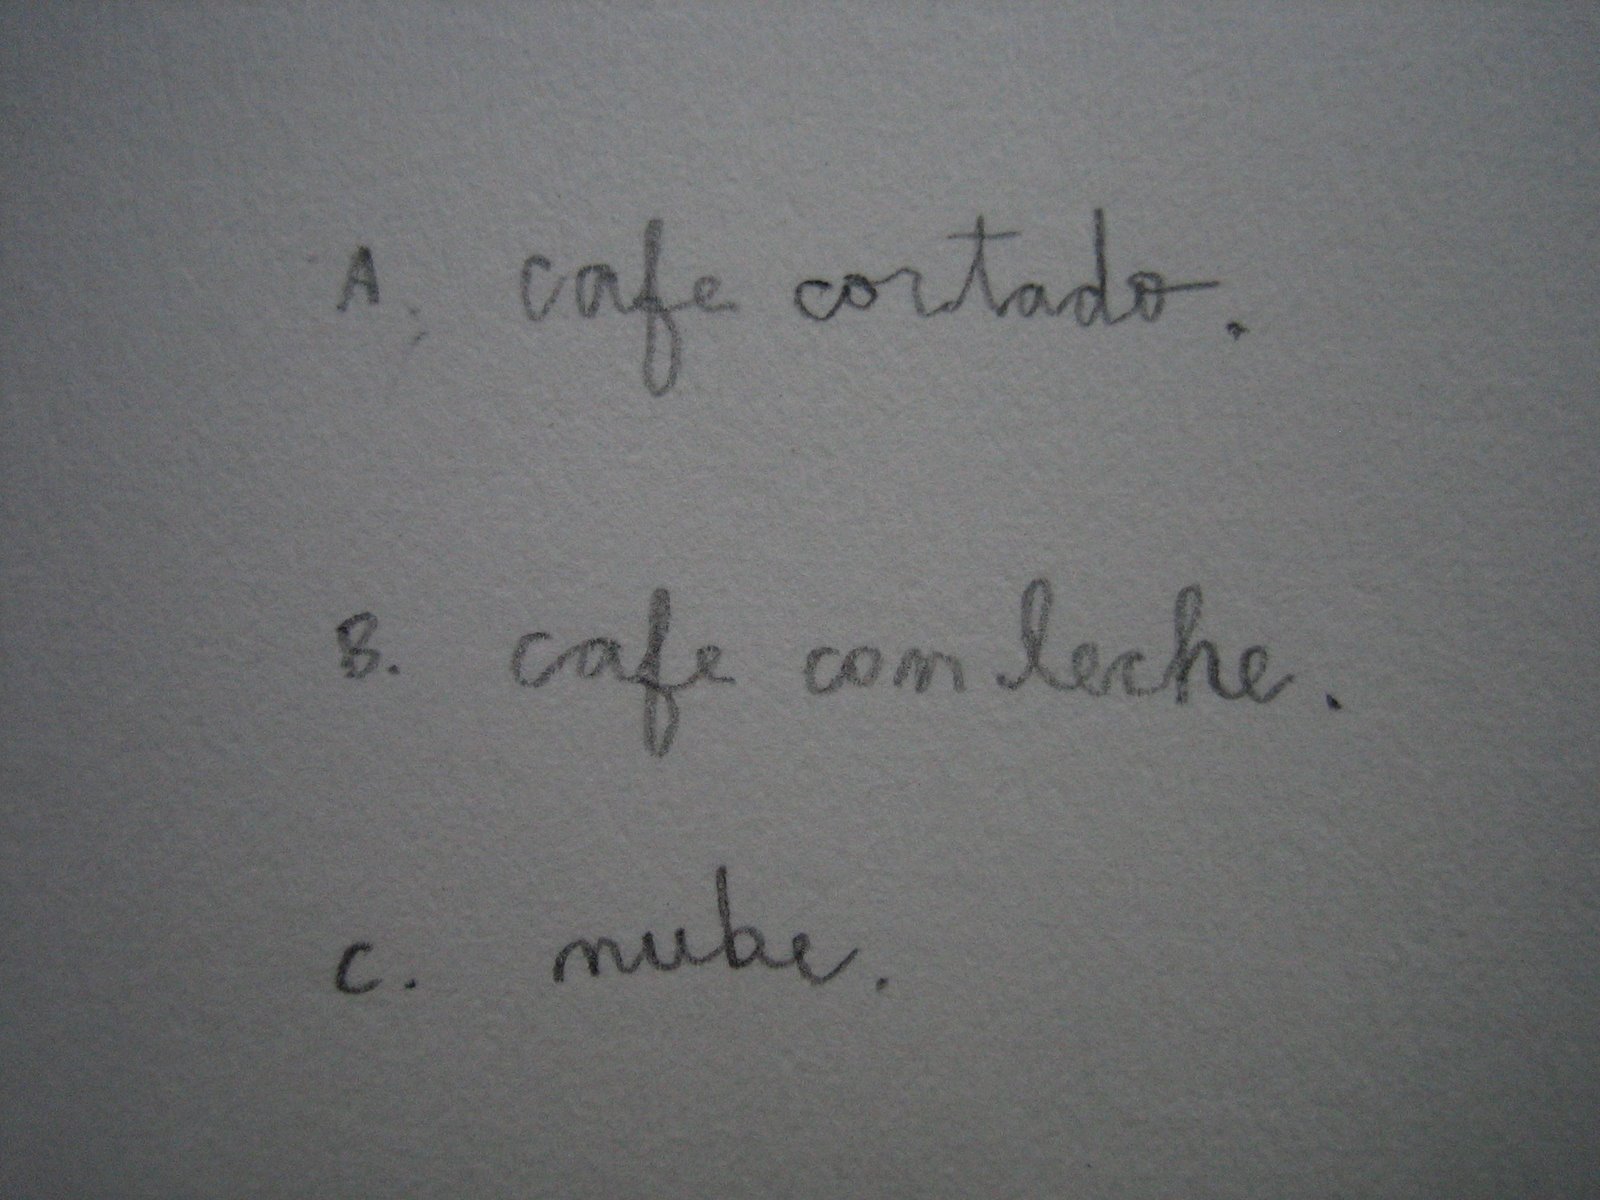 A. cafe cortado.
B. cafe con leche.
C. nube.